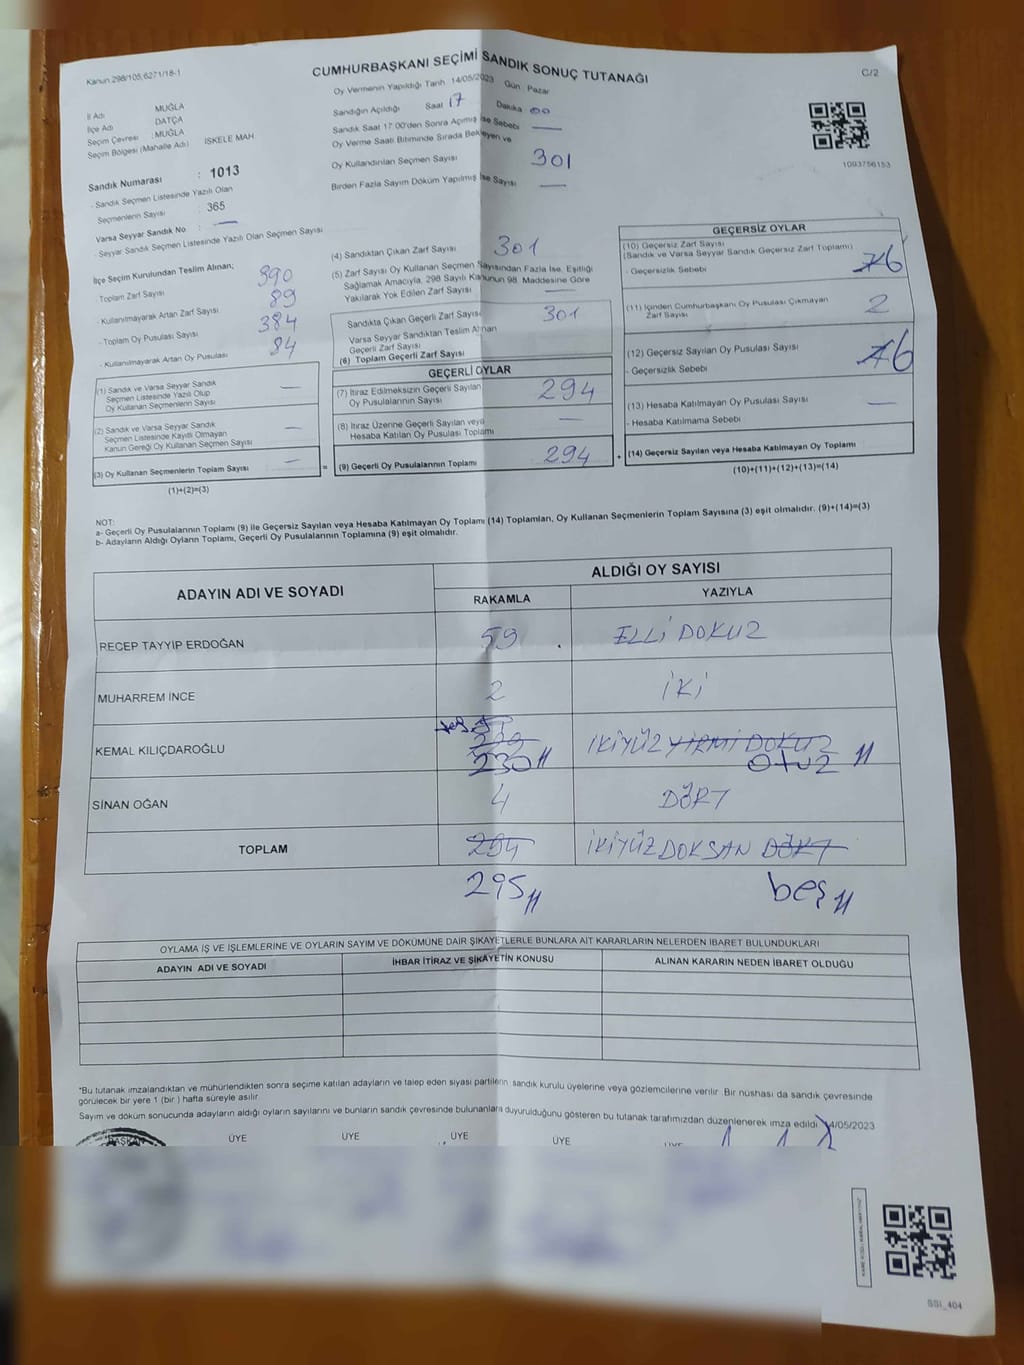 Kanun 298/105,6271/18-1
CUMHURBAŞKANI SEÇİMİ SANDIK SONUÇ TUTANAĞI
C/2
Oy Vermenin Yapıldığı Tarih 14/05/2023 Gün Pazar
İl Adı MUĞLA
İlçe Adı DATÇA
Seçim Çevresi : MUĞLA
Seçim Bölgesi (Mahalle Adı) İSKELE MAH.
Sandığın Açıldığı Saat 17 Dakika 00
Sandık Saat 17:00'den Sonra Açımış İse Sebebi —
Oy Verme Saati Bitiminde Sırada Bekleyen ve
Oy Kullandırılan Seçmen Sayısı 301
Birden Fazla Sayım Döküm Yapılmış İse Sayısı —
1093756153
Sandık Numarası : 1013
- Sandık Seçmen Listesinde Yazılı Olan
Seçmenlerin Sayısı : 365
Varsa Seyyar Sandık No : —
- Seyyar Sandık Seçmen Listesinde Yazılı Olan Seçmen Sayısı
İlçe Seçim Kurulundan Teslim Alınan;
Toplam Zarf Sayısı 390
- Kullanılmayarak Artan Zarf Sayısı 89
- Toplam Oy Pusulası Sayısı 384
- Kullanılmayarak Artan Oy Pusulası 84
(1) Sandık ve Varsa Seyyar Sandık
Seçmen Listesinde Yazılı Olup
Oy Kullanan Seçmenlerin Sayısı —
(2) Sandık ve Varsa Seyyar Sandık
Seçmen Listesinde Kayıtlı Olmayan
Kanun Gereği Oy Kullanan Seçmen Sayısı —
(3) Oy Kullanan Seçmenlerin Toplam Sayısı —
(1)+(2)=(3)
(4) Sandıktan Çıkan Zarf Sayısı 301
(5) Zarf Sayısı Oy Kullanan Seçmen Sayısından Fazla İse, Eşitliği
Sağlamak Amacıyla, 298 Sayılı Kanunun 98. Maddesine Göre
Yakılarak Yok Edilen Zarf Sayısı —
Sandıkta Çıkan Geçerli Zarf Sayısı 301
Varsa Seyyar Sandıktan Teslim Alınan
Geçerli Zarf Sayısı
(6) Toplam Geçerli Zarf Sayısı
GEÇERLİ OYLAR
(7) İtiraz Edilmeksizin Geçerli Sayılan
Oy Pusulalarının Sayısı 294
(8) İtiraz Üzerine Geçerli Sayılan veya
Hesaba Katılan Oy Pusulası Toplamı —
= (9) Geçerli Oy Pusulalarının Toplamı 294
GEÇERSİZ OYLAR
(10) Geçersiz Zarf Sayısı
(Sandık ve Varsa Seyyar Sandık Geçersiz Zarf Toplamı)
- Geçersizlik Sebebi 6
(11) İçinden Cumhurbaşkanı Oy Pusulası Çıkmayan
Zarf Sayısı 2
(12) Geçersiz Sayılan Oy Pusulası Sayısı 6
- Geçersizlik Sebebi
(13) Hesaba Katılmayan Oy Pusulası Sayısı —
- Hesaba Katılmama Sebebi
+ (14) Geçersiz Sayılan veya Hesaba Katılmayan Oy Toplamı
(10)+(11)+(12)+(13)=(14)
NOT:
a- Geçerli Oy Pusulalarının Toplamı (9) ile Geçersiz Sayılan veya Hesaba Katılmayan Oy Toplamı (14) Toplamları, Oy Kullanan Seçmenlerin Toplam Sayısına (3) eşit olmalıdır. (9)+(14)=(3)
b- Adayların Aldığı Oyların Toplamı, Geçerli Oy Pusulalarının Toplamına (9) eşit olmalıdır.
ADAYIN ADI VE SOYADI
ALDIĞI OY SAYISI
RAKAMLA YAZIYLA
RECEP TAYYİP ERDOĞAN 59 ELLİ DOKUZ
MUHARREM İNCE 2 İKİ
KEMAL KILIÇDAROĞLU 229 İKİYÜZ YİRMİ DOKUZ
230 OTUZ
SİNAN OĞAN 4 DÖRT
TOPLAM 294 İKİYÜZ DOKSAN DÖRT
295 beş
OYLAMA İŞ VE İŞLEMLERİNE VE OYLARIN SAYIM VE DÖKÜMÜNE DAİR ŞİKAYETLERLE BUNLARA AİT KARARLARIN NELERDEN İBARET BULUNDUKLARI
ADAYIN ADI VE SOYADI İHBAR İTİRAZ VE ŞİKAYETİN KONUSU ALINAN KARARIN NEDEN İBARET OLDUĞU
*Bu tutanak imzalandıktan ve mühürlendikten sonra seçime katılan adayların ve talep eden siyasi partilerin sandık kurulu üyelerine veya gözlemcilerine verilir. Bir nüshası da sandık çevresinde
görülecek bir yere 1 (bir) hafta süreyle asılır.
Sayım ve döküm sonucunda adayların aldığı oyların sayılarını ve bunların sandık çevresinde bulunanlara duyurulduğunu gösteren bu tutanak tarafımızdan düzenlenerek imza edildi. 14/05/2023
BAŞKAN ÜYE ÜYE ÜYE ÜYE ÜYE
SSI_404